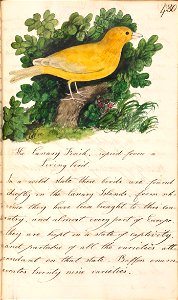 430
The Canary Finch, copied from a
Living bird.
In a wild state these birds are found
chiefly in the Canary Islands, from wh
ence they have been brought to this cou
ntry, and almost every part of Europe
they are kept in a state of captivity,
and partake of all the varieties att
endant on that state. Buffon enum
erates twenty nine varieties.